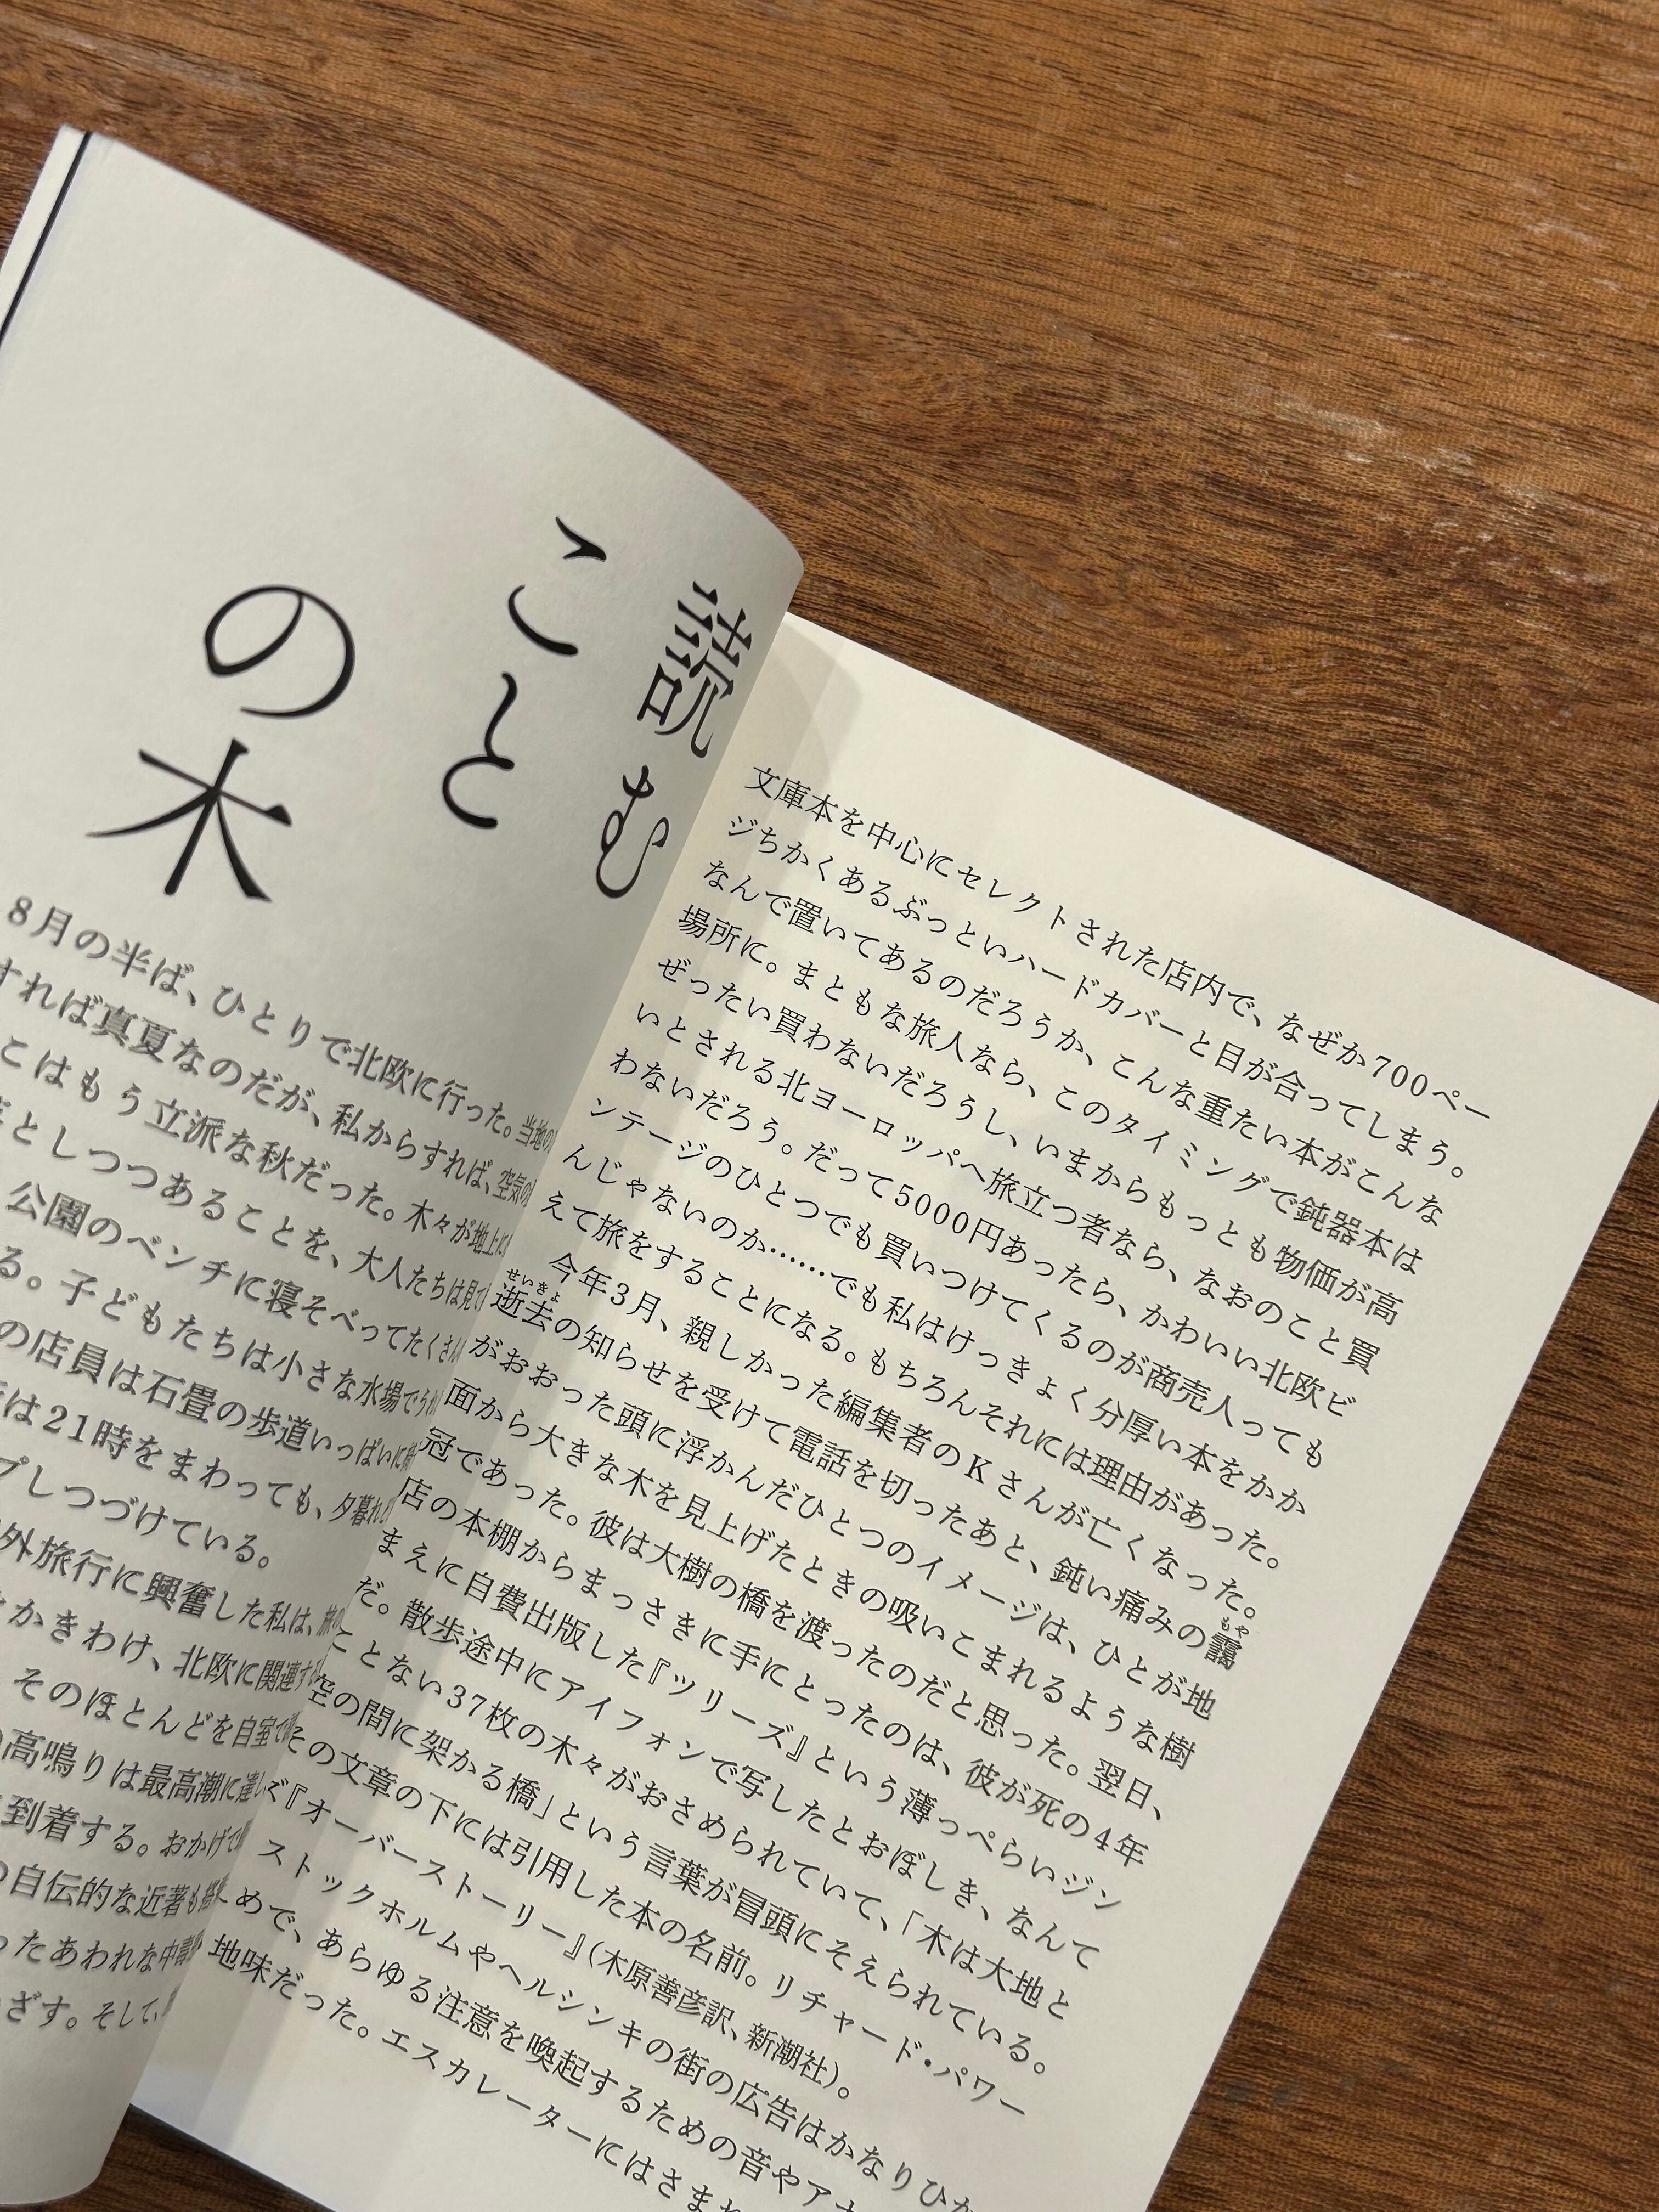 読む
こと
の木
8月の半ば、ひとりで北欧に行った。当地の
すれば真夏なのだが、私からすれば、空気の
こはもう立派な秋だった。木々が地上に
としつつあることを、大人たちは見て
公園のベンチに寝そべってたくさん
る。子どもたちは小さな水場でうれ
の店員は石畳の歩道いっぱいに
は21時をまわっても、夕暮れ
プしつづけている。
外旅行に興奮した私は、旅の
かきわけ、北欧に関連す
そのほとんどを自室で
高鳴りは最高潮に達し
到着する。おかげで
の自伝的な近著も
ったあわれな中
ざす。そして、
文庫本を中心にセレクトされた店内で、なぜか700ペー
ジちかくあるぶっといハードカバーと目が合ってしまう。
なんで置いてあるのだろうか、こんな重たい本がこんな
場所に。まともな旅人なら、このタイミングで鈍器本は
ぜったい買わないだろうし、いまからもっとも物価が高
いとされる北ヨーロッパへ旅立つ者なら、なおのこと買
わないだろう。だって5000円あったら、かわいい北欧ビ
ンテージのひとつでも買いつけてくるのが商売人っても
んじゃないのか……でも私はけっきょく分厚い本をかか
えて旅をすることになる。もちろんそれには理由があった。
今年3月、親しかった編集者のKさんが亡くなった。
逝去の知らせを受けて電話を切ったあと、鈍い痛みの靄
がおおった頭に浮かんだひとつのイメージは、ひとが地
面から大きな木を見上げたときの吸いこまれるような樹
冠であった。彼は大樹の橋を渡ったのだと思った。翌日、
店の本棚からまっさきに手にとったのは、彼が死の4年
まえに自費出版した『ツリーズ』という薄っぺらいジン
だ。散歩途中にアイフォンで写したとおぼしき、なんて
ことない37枚の木々がおさめられていて、「木は大地と
空の間に架かる橋」という言葉が冒頭にそえられている。
その文章の下には引用した本の名前。リチャード・パワー
ズ『オーバーストーリー』(木原善彦訳、新潮社)。
ストックホルムやヘルシンキの街の広告はかなりひか
えめで、あらゆる注意を喚起するための音やアナ
地味だった。エスカレーターにはさまれ